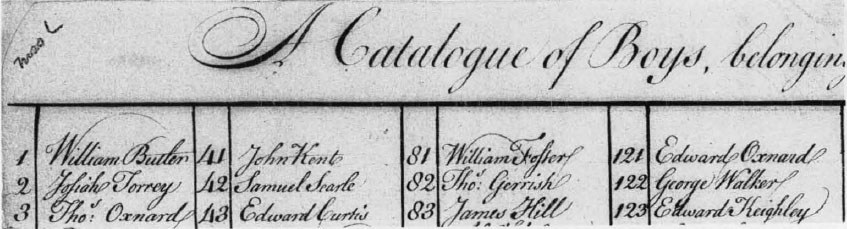 A Catalogue of Boys, belonging
1 William Butler 41 John Kent 81 William Foster 121 Edward Oxnard
2 Josiah Torrey 42 Samuel Searle 82 Thos. Gerrish 122 George Walker
3 Thos. Oxnard 43 Edward Curtis 83 James Hill 123 Edward Keighley